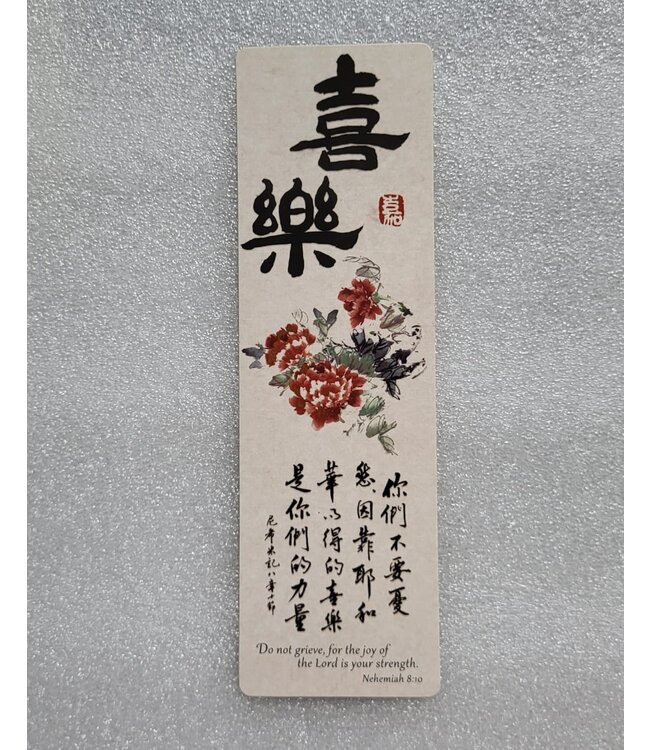 喜
樂
你們不要憂
愁因靠耶和
華以得的喜樂
是你們的力量
尼希米記八章十節
Do not grieve, for the joy of
the Lord is your strength.
Nehemiah 8:10